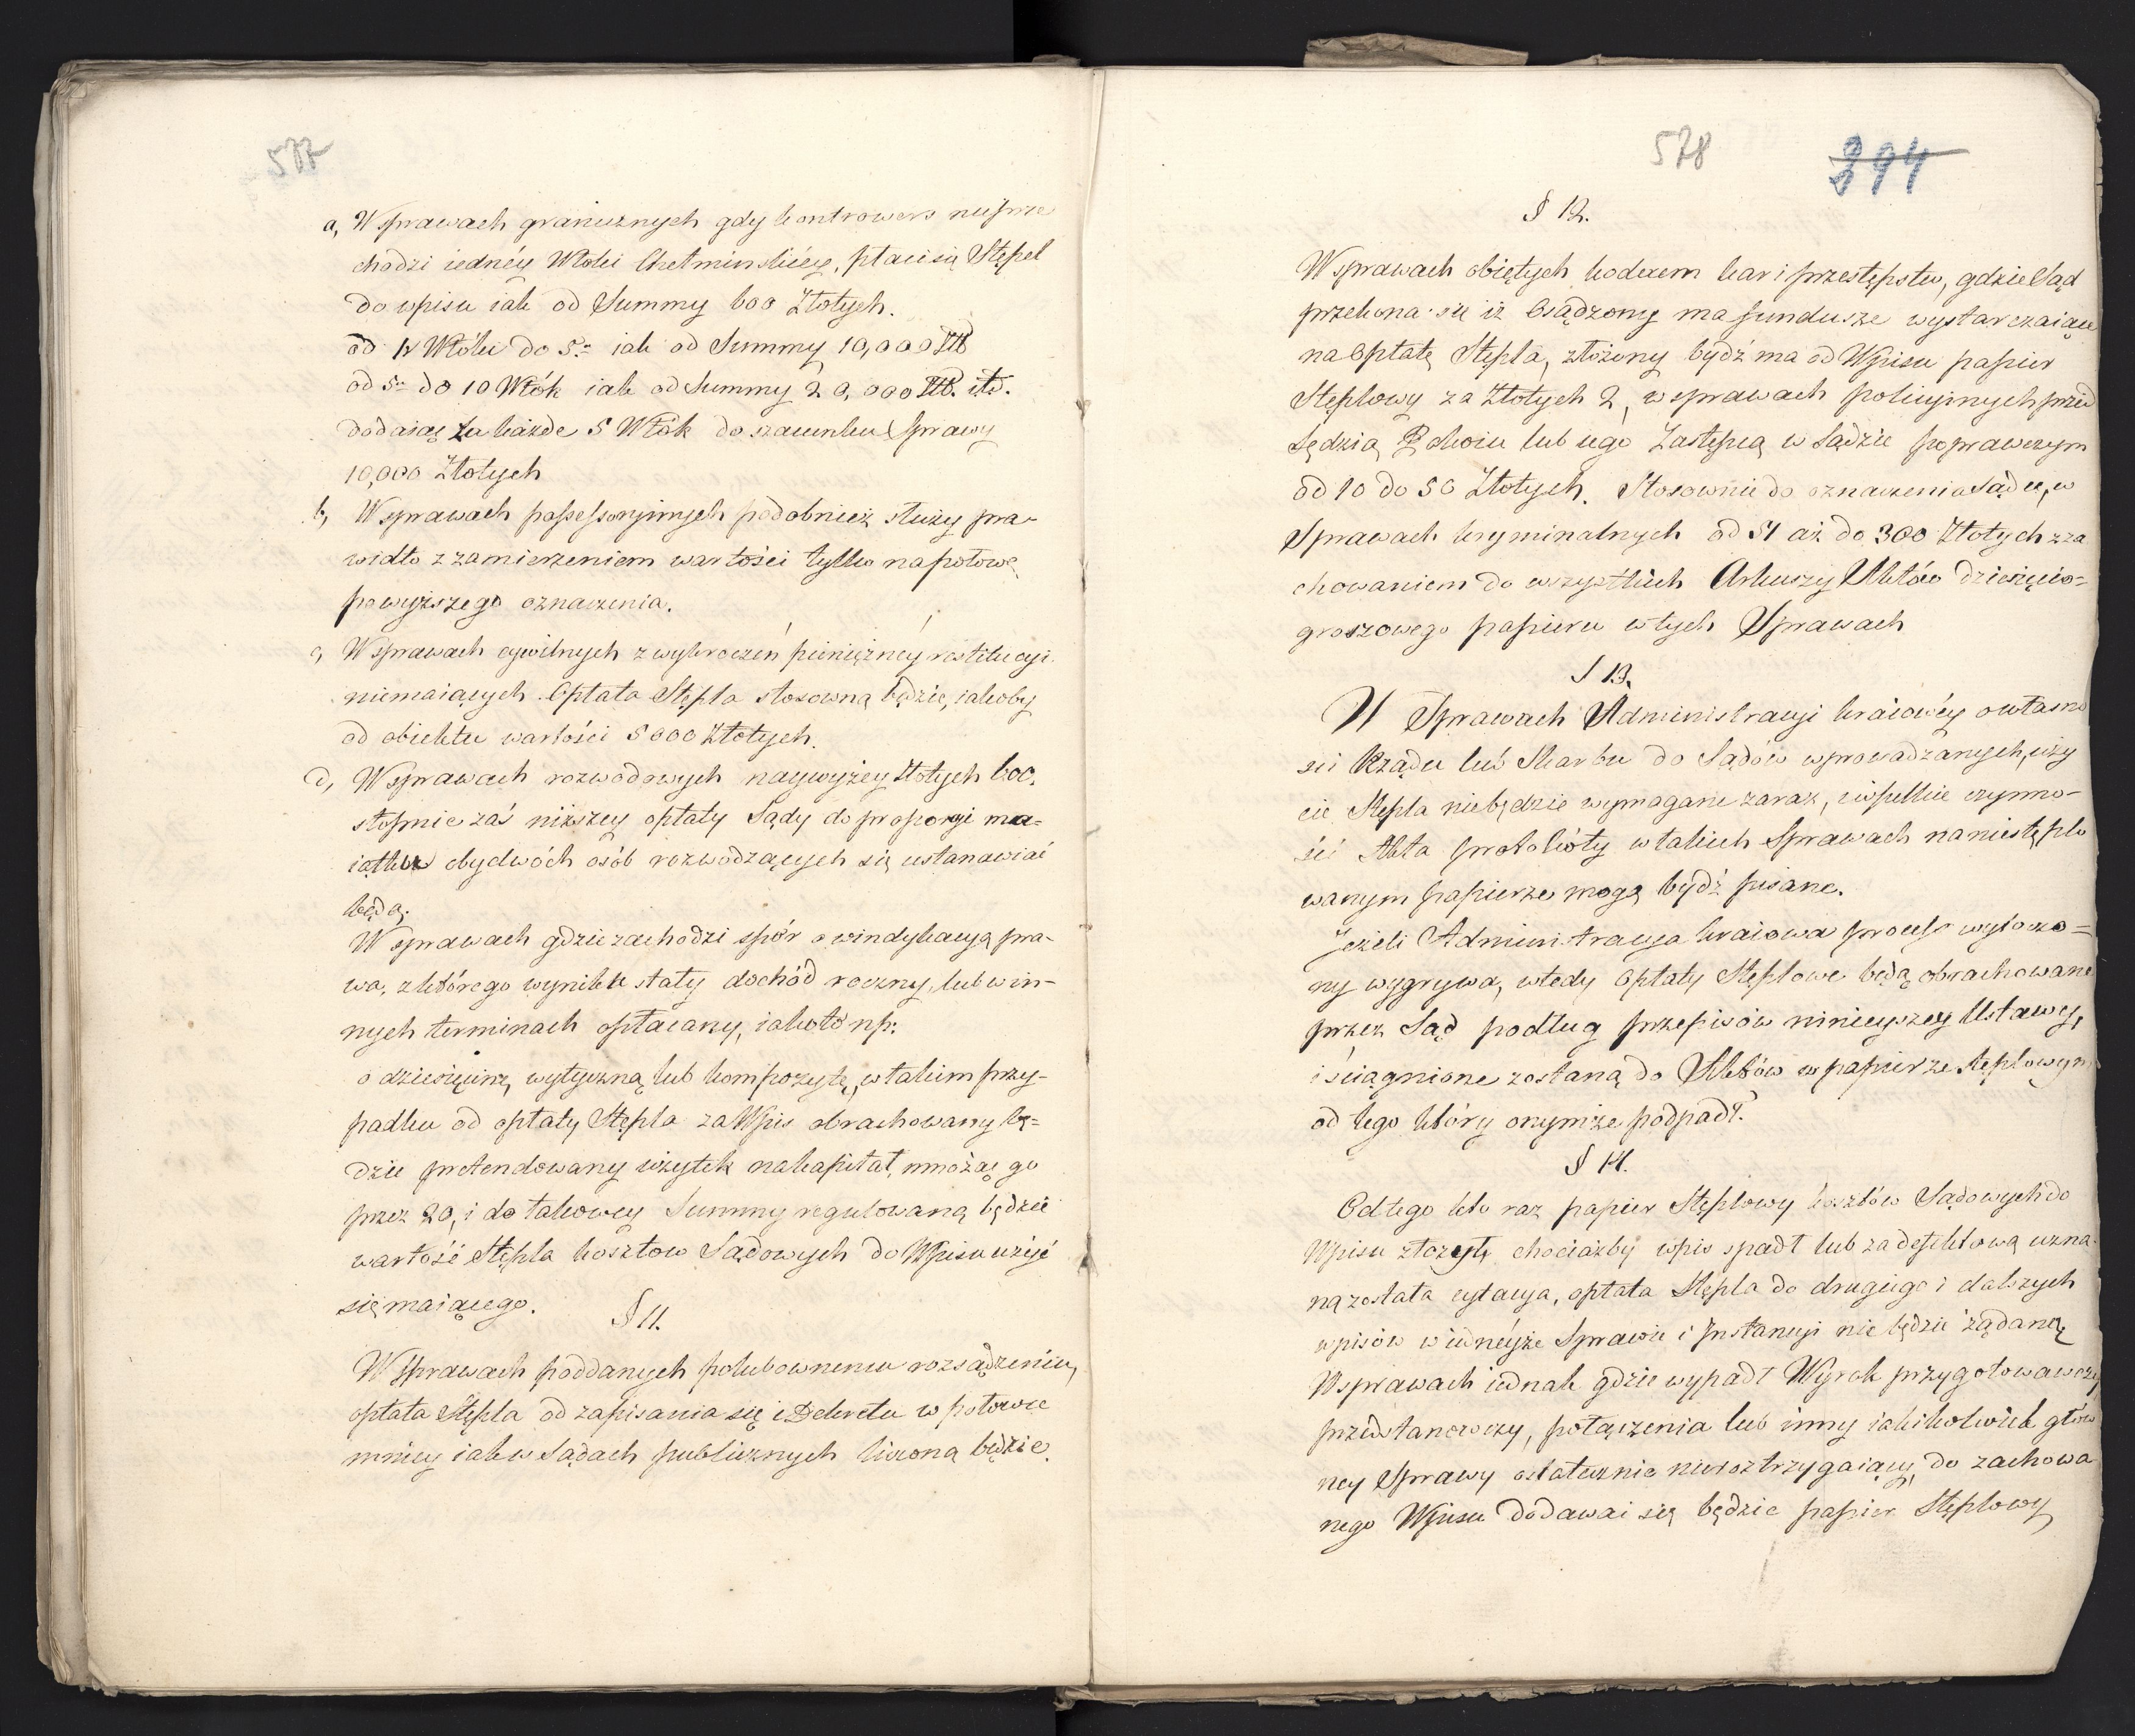 577
a, W sprawach granicznych gdy kontrowers nieprze
chodzi iednéy Włoki Chełminskiéy, płaci się Stępel
do wpisu iak od Summy 600 Złotych.
od 1r Włóki do 5.= iak od Summy 10,000 Złt
od 5= do 10 Włók iak od Summy 20,000 Złt. itd.
dodaiąc za każde 5 Włók do szacunku Sprawy
10,000 Złotych
b, W sprawach possessoryinych podobnież służy pra-
widło z zamierzeniem wartości tylko na połowę
powyższego oznaczenia.
c, W sprawach cywilnych z wykroczeń pieniężnéy restitucyi
niemaiących Opłata Stępla stosowną będzie, iakoby
od obiektu wartości 5000 Złotych.
d, W sprawach rozwodowych naywyżey Złotych 600.
stopnie zaś niższey opłaty Sądy do proporcyi ma=
iątków obydwóch osób rozwodzących się ustanawiać
będą.
W sprawach gdzie zachodzi spór o windykacyą pra-
wa, z którego wynika stały dochód roczny, lub w in-
nych terminach opłacany, iakoto np:
o dziesięcinę, wytyczną lub kompozytę, w takim przy-
padku od opłaty Stępla za Wpis obrachowany bę=
dzie pretendowany użytek na kapitał, mnożąc go
przez 20, i do takowey Summy regulowaną będzie
wartość Stępla kosztow Sądowych do Wpisu użyć
się maiącego.
§ 11.
W Sprawach poddanych polubownemu rozsądzeniu,
opłata Stępla od zapisania się i Dekretu w połowie
mniey iak w Sądach publicznych liczoną będzie.
578 394
§ 12.
W sprawach obiętych kodexem kar i przestępstw, gdzie Sąd
przekona się iż Osądzony ma fundusze wystarczaiące
na Opłatę Stępla, złożony bydź ma od Wpisu papier
Stęplowy za Złotych 2, w sprawach policyinych przed
Sędzią Pokoiu lub iego Zastępcą w Sądzie poprawczym
od 10 do 50 Złotych. Stosownie do oznaczenia Sądu, w
Sprawach kryminalnych od 51 aż do 300 Złotych z za
chowaniem do wszystkich Arkuszy Aktów dziesięcio=
groszowego papieru w tych Sprawach
§ 13.
W Sprawach Administracyi kraiowéy o własno
ści Rządu lub Skarbu do Sądów wprowadzanych, uży
cie Stępla niebędzie wymagane zaraz, i wszelkie czynno-
ści Akta protokóły w takich Sprawach na niestęplo
wanym papierze mogą bydź pisane.
Jeżeli Administracya kraiowa process wytoczo=
ny wygrywa, wtedy Opłaty Stęplowe będą obrachowane
przez Sąd podług przepisów ninieyszey Ustawy,
i sciągnione zostaną do Aktów w papierze stęplowym
od tego który onymże podpadł.
§ 14.
Od tego kto raz papier Stęplowy kosztów Sądowych do
Wpisu złożył chociażby wpis spadł lub za defektową uzna
ną została cytacya, opłata Stępla do drugiego i dalszych
wpisów w iednéyże Sprawie i Instancyi nie będzie żądaną
W sprawach iednak gdzie wypadł Wyrok przygotowawczy
przedstanowczy, połączenia lub inny iakikolwiek głów
ney Sprawy ostatecznie nierozstrzygaiący, do zachowa
nego Wpisu dodawać się będzie papier Stęplowy